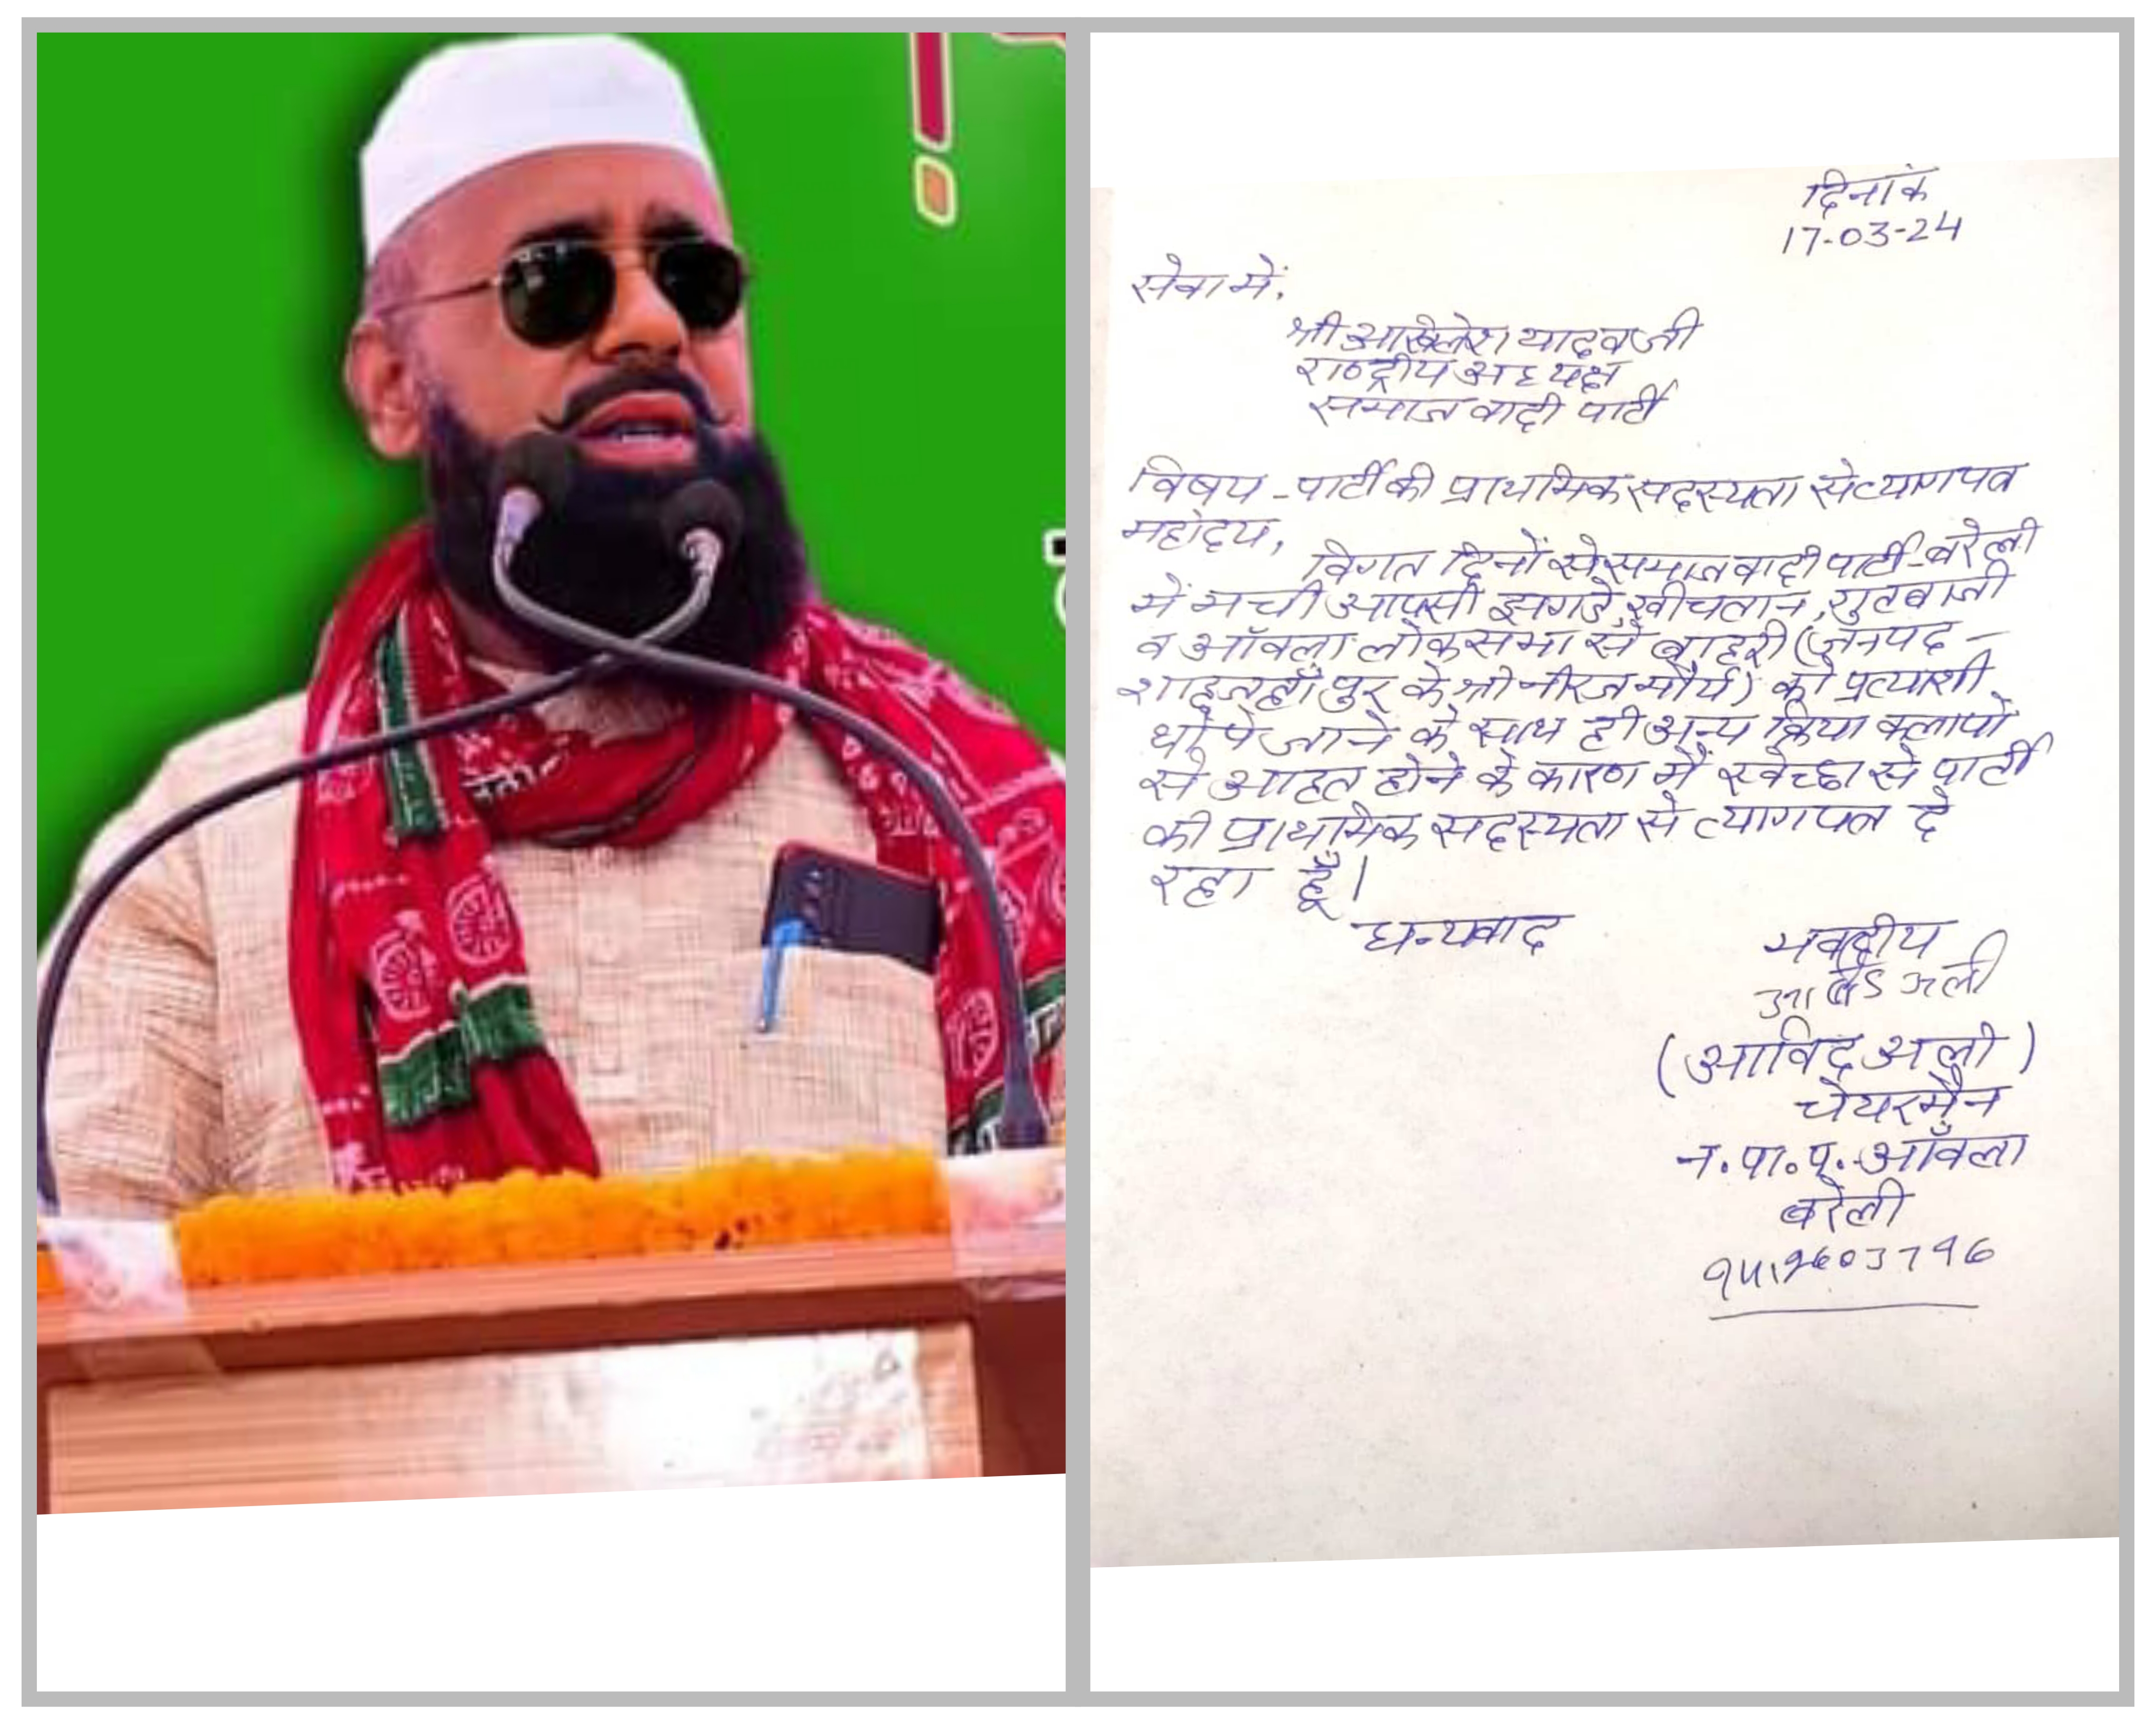 दिनांक
17-03-24
सेवा में,
श्री अखिलेश यादव जी
राष्ट्रीय अध्यक्ष
समाजवादी पार्टी
विषय - पार्टी की प्राथमिक सदस्यता से त्यागपत्र
महोदय,
विगत दिनों से समाजवादी पार्टी - बरेली
में मची आपसी झगडे, खीचतान, गुटबाजी
व आँवला लोकसभा से बाहरी (जनपद -
शाहजहाँपुर के श्री नीरज मौर्य) को प्रत्याशी
थोपे जाने के साथ ही अन्य क्रिया क्लापों
से आहत होने के कारण मैं स्वेच्छा से पार्टी
की प्राथमिक सदस्यता से त्यागपत्र दे
रहा हूँ।
धन्यवाद
भवदीय
अली
(आविद अली)
चेयरमैन
न. पा. प. आँवला
बरेली